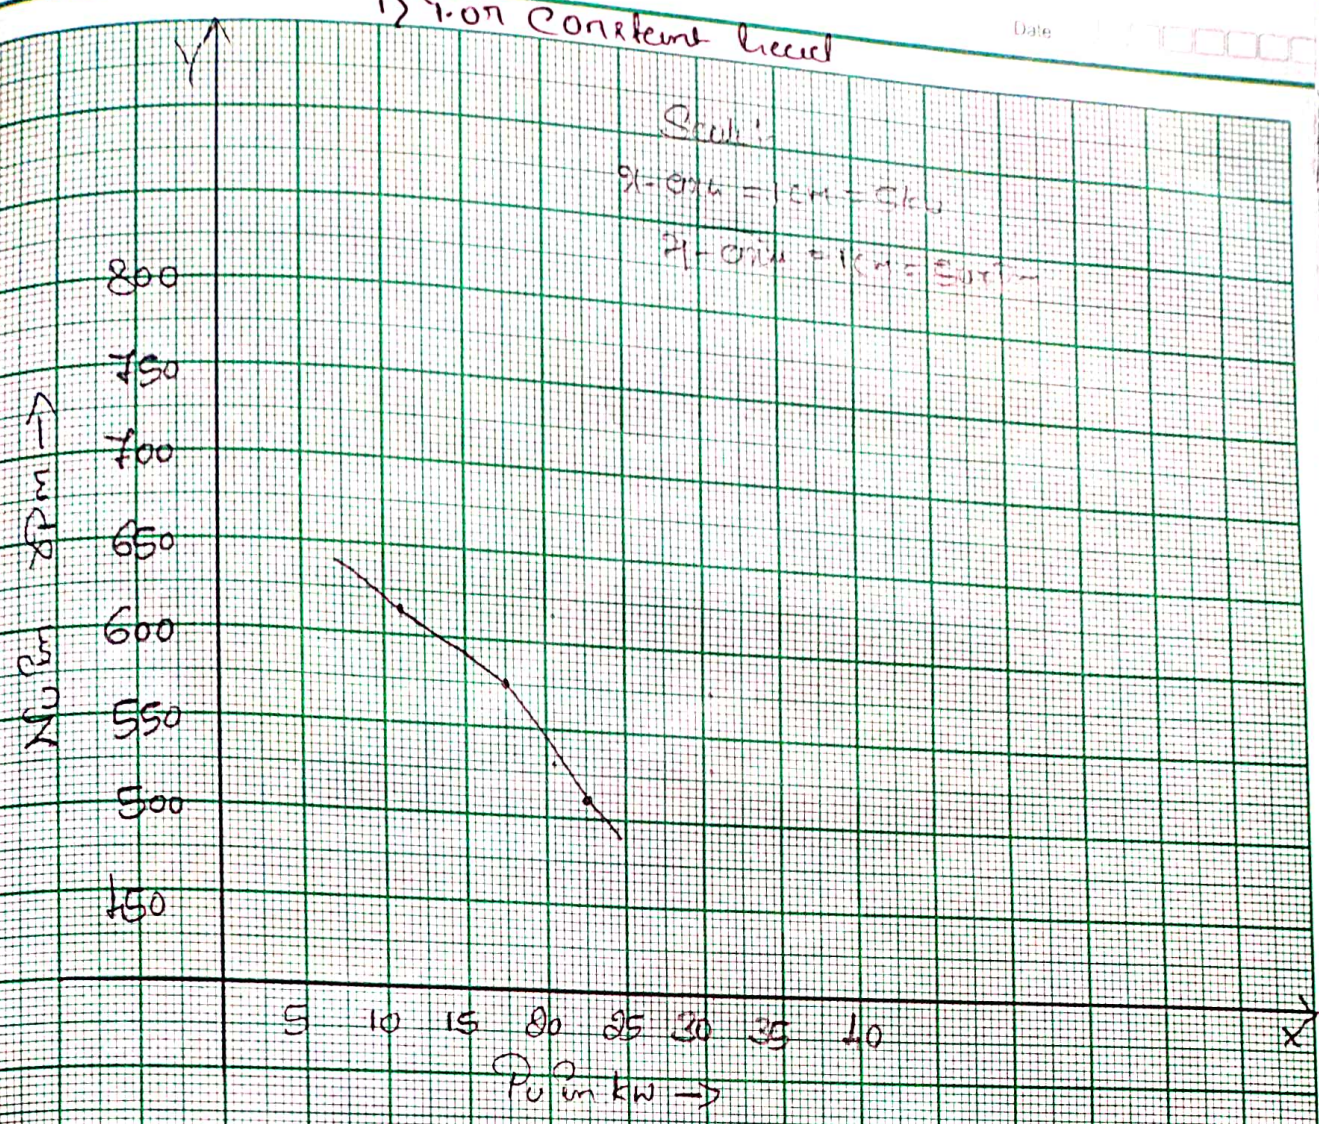 1) For Constant head
Date
Y
Scale:-
x-axis = 1cm = 5kw
y-axis = 1cm = 50rpm
800
750
700
650
600
550
500
450
Nu in RPm →
5 10 15 20 25 30 35 40
X
Pu in kw →